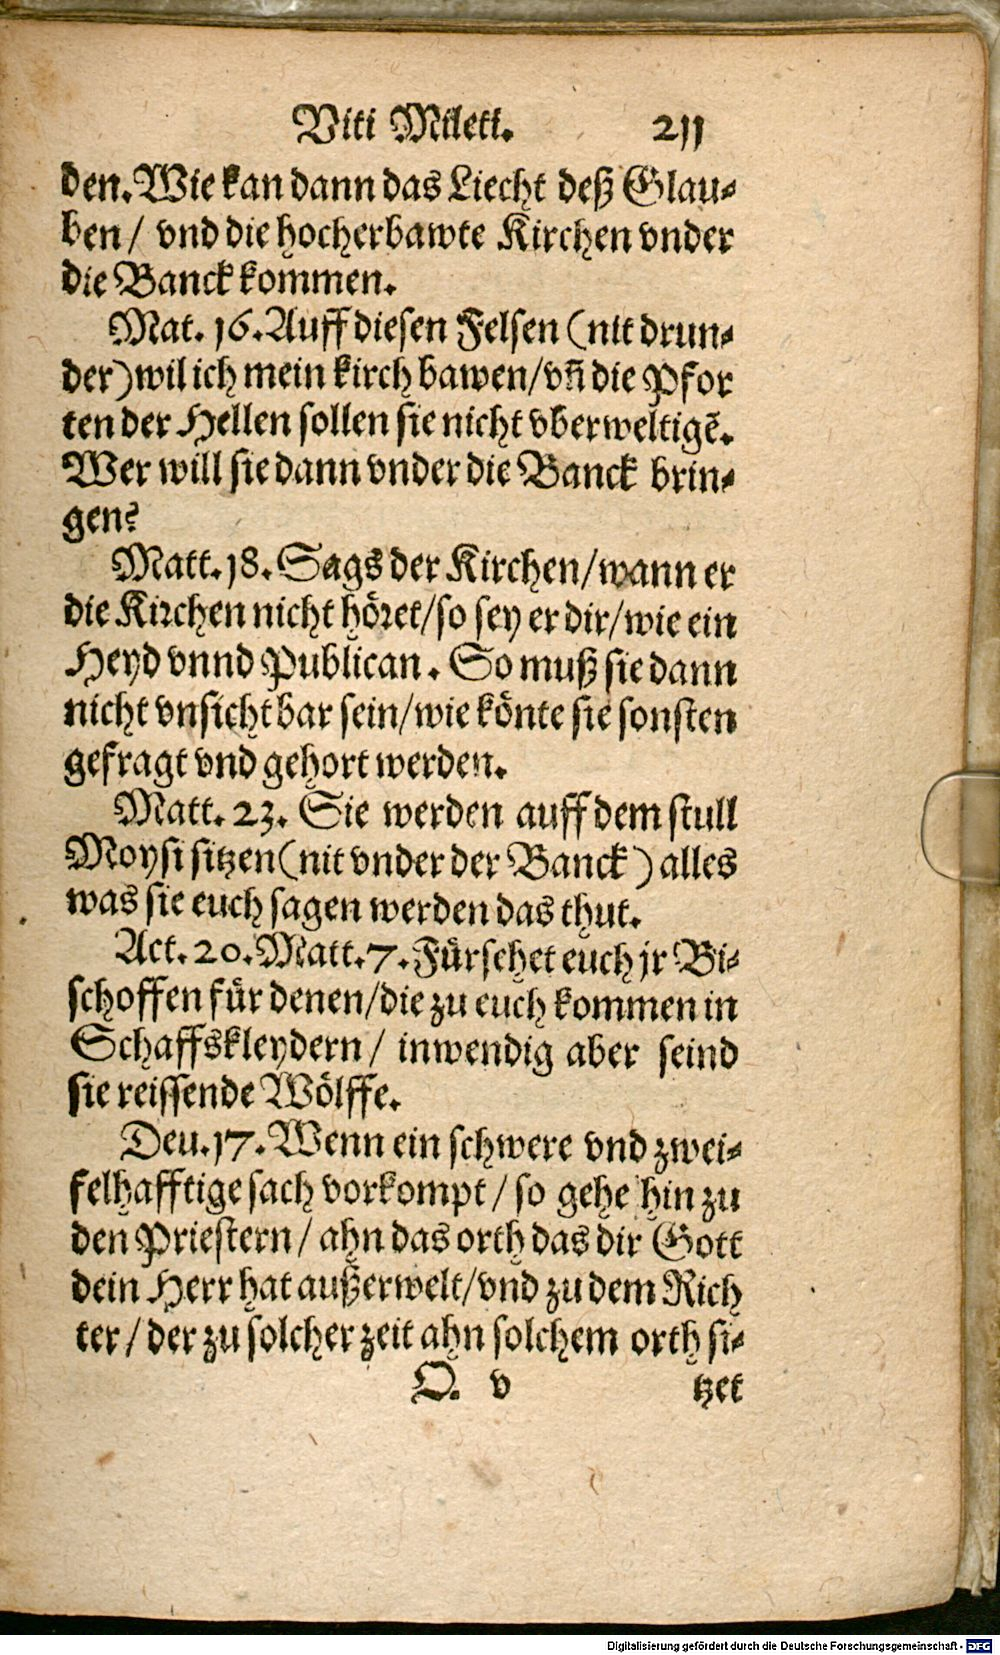 Viti Mileti. 211
den. Wie kan dann das Liecht deß Glau-
ben / vnd die hocherbawte Kirchen vnder
die Banck kommen.
Mat. 16. Auff diesen Felsen (nit drun-
der) wil ich mein kirch bawen / vñ die Pfor
ten der Hellen sollen sie nicht vberweltigẽ.
Wer will sie dann vnder die Banck brin-
gen?
Matt. 18. Sags der Kirchen / wann er
die Kirchen nicht höret / so sey er dir / wie ein
Heyd vnnd Publican. So muß sie dann
nicht vnsichtbar sein / wie könte sie sonsten
gefragt vnd gehort werden.
Matt. 23. Sie werden auff dem stull
Moysi sitzen (nit vnder der Banck) alles
was sie euch sagen werden das thut.
Act. 20. Matt. 7. Fürsehet euch jr Bi-
schoffen für denen / die zu euch kommen in
Schaffskleydern / inwendig aber seind
sie reissende Wölffe.
Deu. 17. Wenn ein schwere vnd zwei-
felhafftige sach vorkompt / so gehe hin zu
den Priestern / ahn das orth das dir Gott
dein Herr hat außerwelt / vnd zu dem Rich
ter / der zu solcher zeit ahn solchem orth si-
O. v tzet
Digitalisierung gefördert durch die Deutsche Forschungsgemeinschaft - DFG